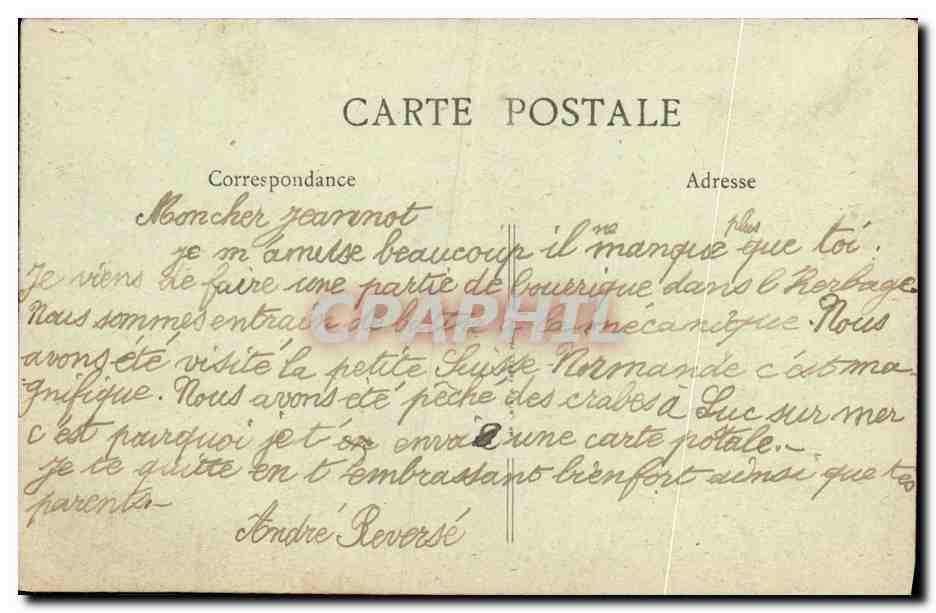 CARTE POSTALE
Correspondance
Adresse
Moncher Jeannot
je m'amuse beaucoup il ne manque plus que toi.
Je viens de faire une partie de bourrique dans l'herbage.
Nous sommes entrain de battre à la mécanique. Nous
avons été visité la petite Suisse Normande c'est ma-
gnifique. Nous avons été pêché des crabes à Luc sur mer
c'est pourquoi je t' envoie une carte pôtale.-
Je te quitte en t'embrassant bien fort ainsi que tes
parents-
André Reversé
CPAPHIL